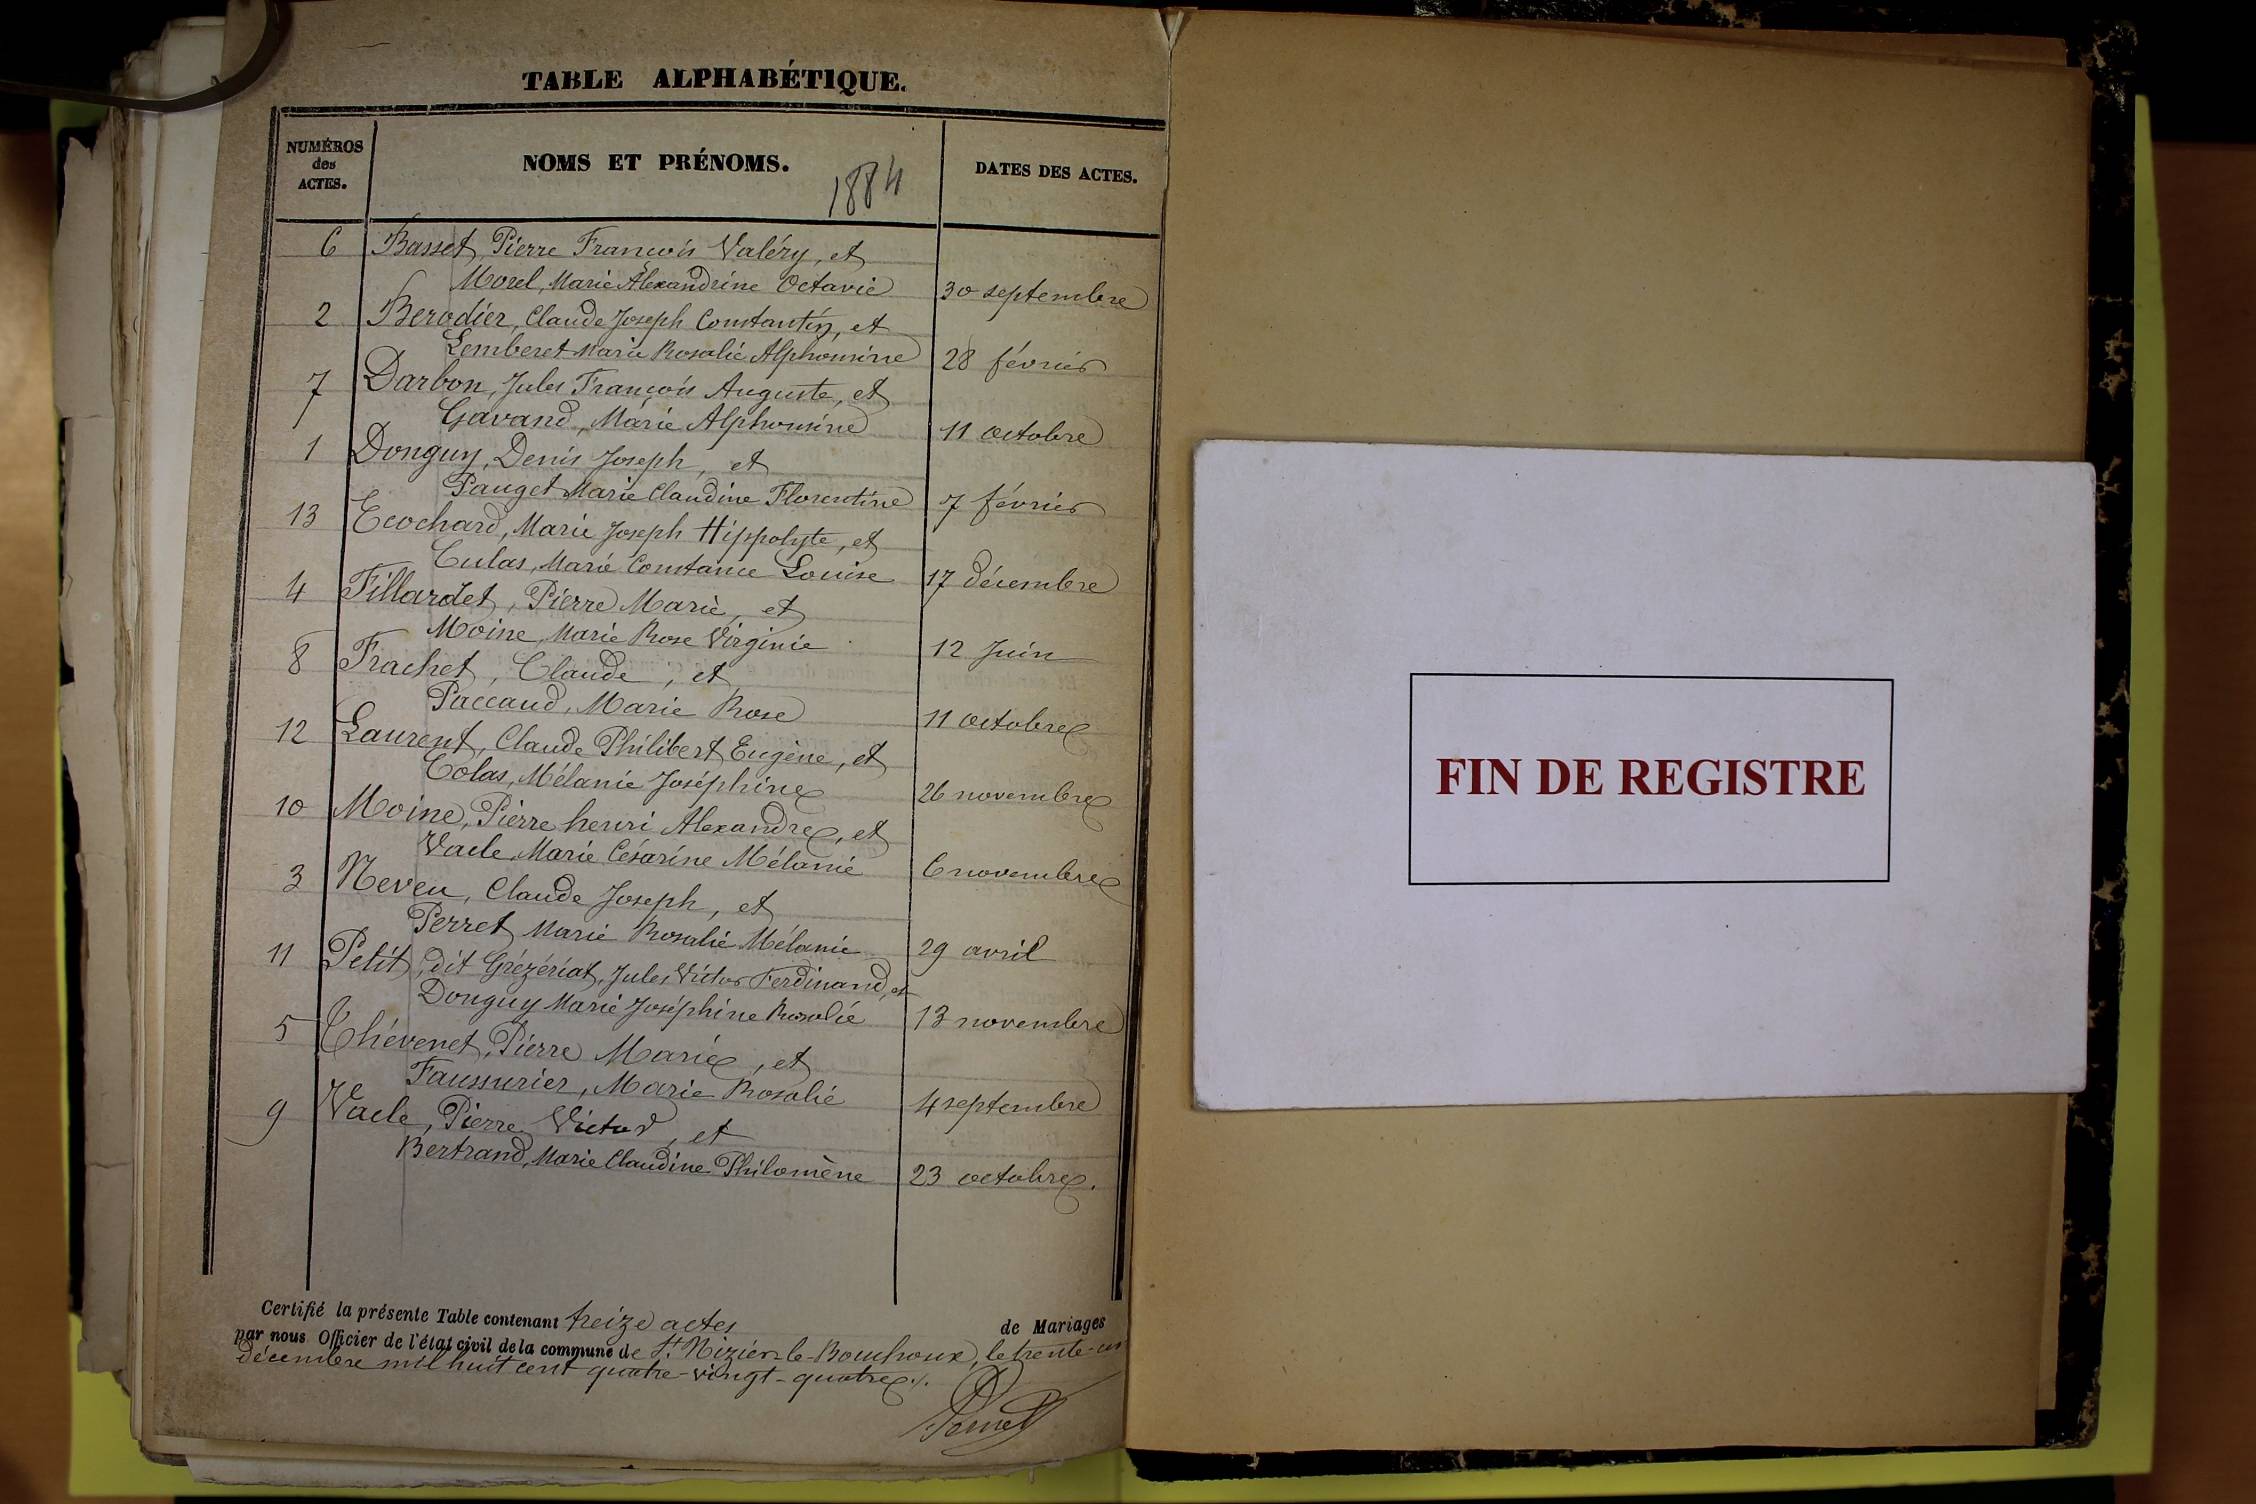 TABLE ALPHABÉTIQUE.
NUMÉROS
des
ACTES.
NOMS ET PRÉNOMS.
1884
DATES DES ACTES.
6 Basset, Pierre François Valéry, et
Morel, Marie Alexandrine Octavie 30 septembre
2 Berodier, Claude Joseph Constantin, et
Lemberet Marie Rosalie Alphonsine 28 février
7 Darbon, Jules François Auguste, et
Gavand, Marie Alphonsine 11 octobre
1 Donguy, Denis Joseph, et
Pauget Marie Claudine Florentine 7 février
13 Ecochard, Marie Joseph Hippolyte, et
Culas, Marie Constance Louise 17 décembre
4 Fillardet, Pierre Marie, et
Moine, Marie Rose Virginie 12 Juin
8 Frachet, Claude, et
Paccaud, Marie Rose 11 octobre
12 Laurent, Claude Philibert Eugène, et
Colas, Mélanie Joséphine 26 novembre
10 Moine, Pierre henri Alexandre, et
Vacle, Marie Césarine Mélanie 6 novembre
3 Neveu, Claude Joseph, et
Perret Marie Rosalie Mélanie 29 avril
11 Petit, dit Grézériat, Jules Victor Ferdinand, et
Donguy Marie Joséphine Rosalie 13 novembre
5 Chévenet, Pierre Marie, et
Faussurier, Marie Rosalie 4 septembre
9 Vacle, Pierre Victor, et
Bertrand, Marie Claudine Philomène 23 octobre.
Certifié la présente Table contenant treize actes de Mariages
par nous Officier de l'état civil de la commune de St Nizier-le-Bouchoux, le trente-un
décembre mil huit cent quatre-vingt-quatre ./.
FIN DE REGISTRE